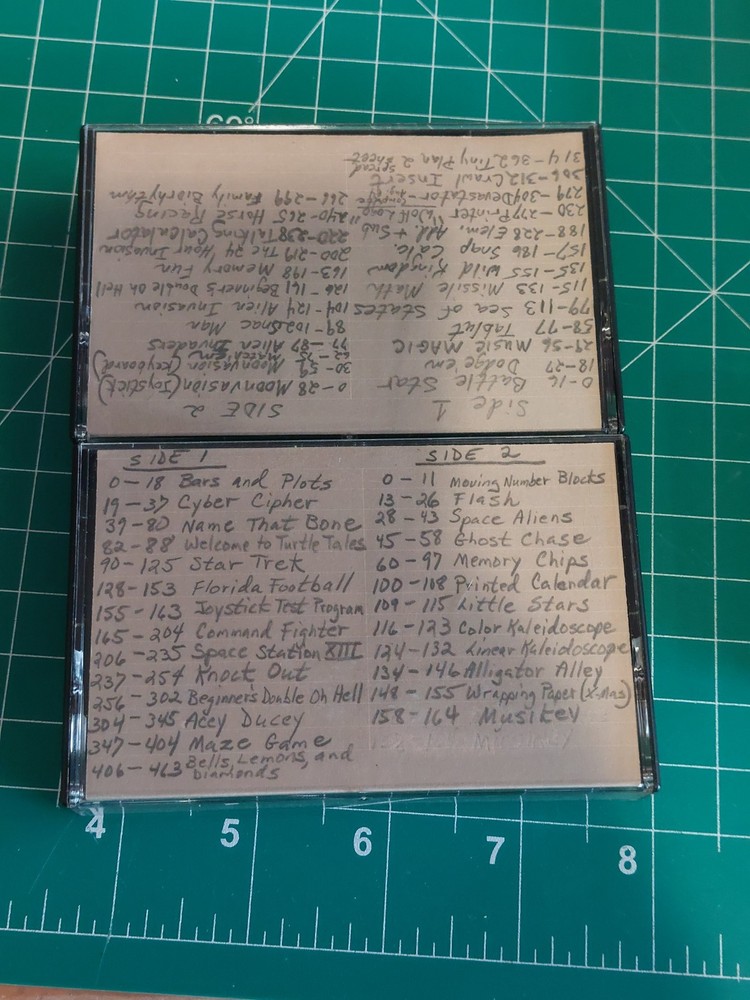 60°
Side 1
0-16 Battle Star
18-27 Dodge'em
29-56 Music MAGIC
58-77 Tablut
79-113 Sea of States
115-133 Missile Math
135-155 Wild Kingdom
157-186 Snap Calc.
188-228 Elem. Add. + Sub
230-277 Printer "Wolf Logo"
279-304 Devastator - Compute Aug. 84
306-312 Crawl Insert
314-362 Tiny Plan 2 Spread sheet
SIDE 2
0-28 Moonvasion (Joystick)
30-59 Moonvasion (Keyboard)
62-75 Match'em
77-87 Alien Invaders
89-102 Snac Man
104-124 Alien Invasion
126-161 Beginner's Double Oh Hell
163-198 Memory Fun
200-219 The 24 Hour Invasion
220-238 Talking Calculator
240-265 Horse Racing
266-299 Family Biorhythm
SIDE 1
0-18 Bars and Plots
19-37 Cyber Cipher
39-80 Name That Bone
82-88 Welcome to Turtle Tales
90-125 Star Trek
128-153 Florida Football
155-163 Joystick Test Program
165-204 Command Fighter
206-235 Space Station XIII
237-254 Knock Out
256-302 Beginner's Double Oh Hell
304-345 Acey Ducey
347-404 Maze Game
406-463 Bells, Lemons, and
Diamonds
SIDE 2
0-11 Moving Number Blocks
13-26 Flash
28-43 Space Aliens
45-58 Ghost Chase
60-97 Memory Chips
100-108 Printed Calendar
109-115 Little Stars
116-123 Color Kaleidoscope
124-132 Linear Kaleidoscope
134-146 Alligator Alley
148-155 Wrapping Paper (X-mas)
158-164 Musikey
4 5 6 7 8